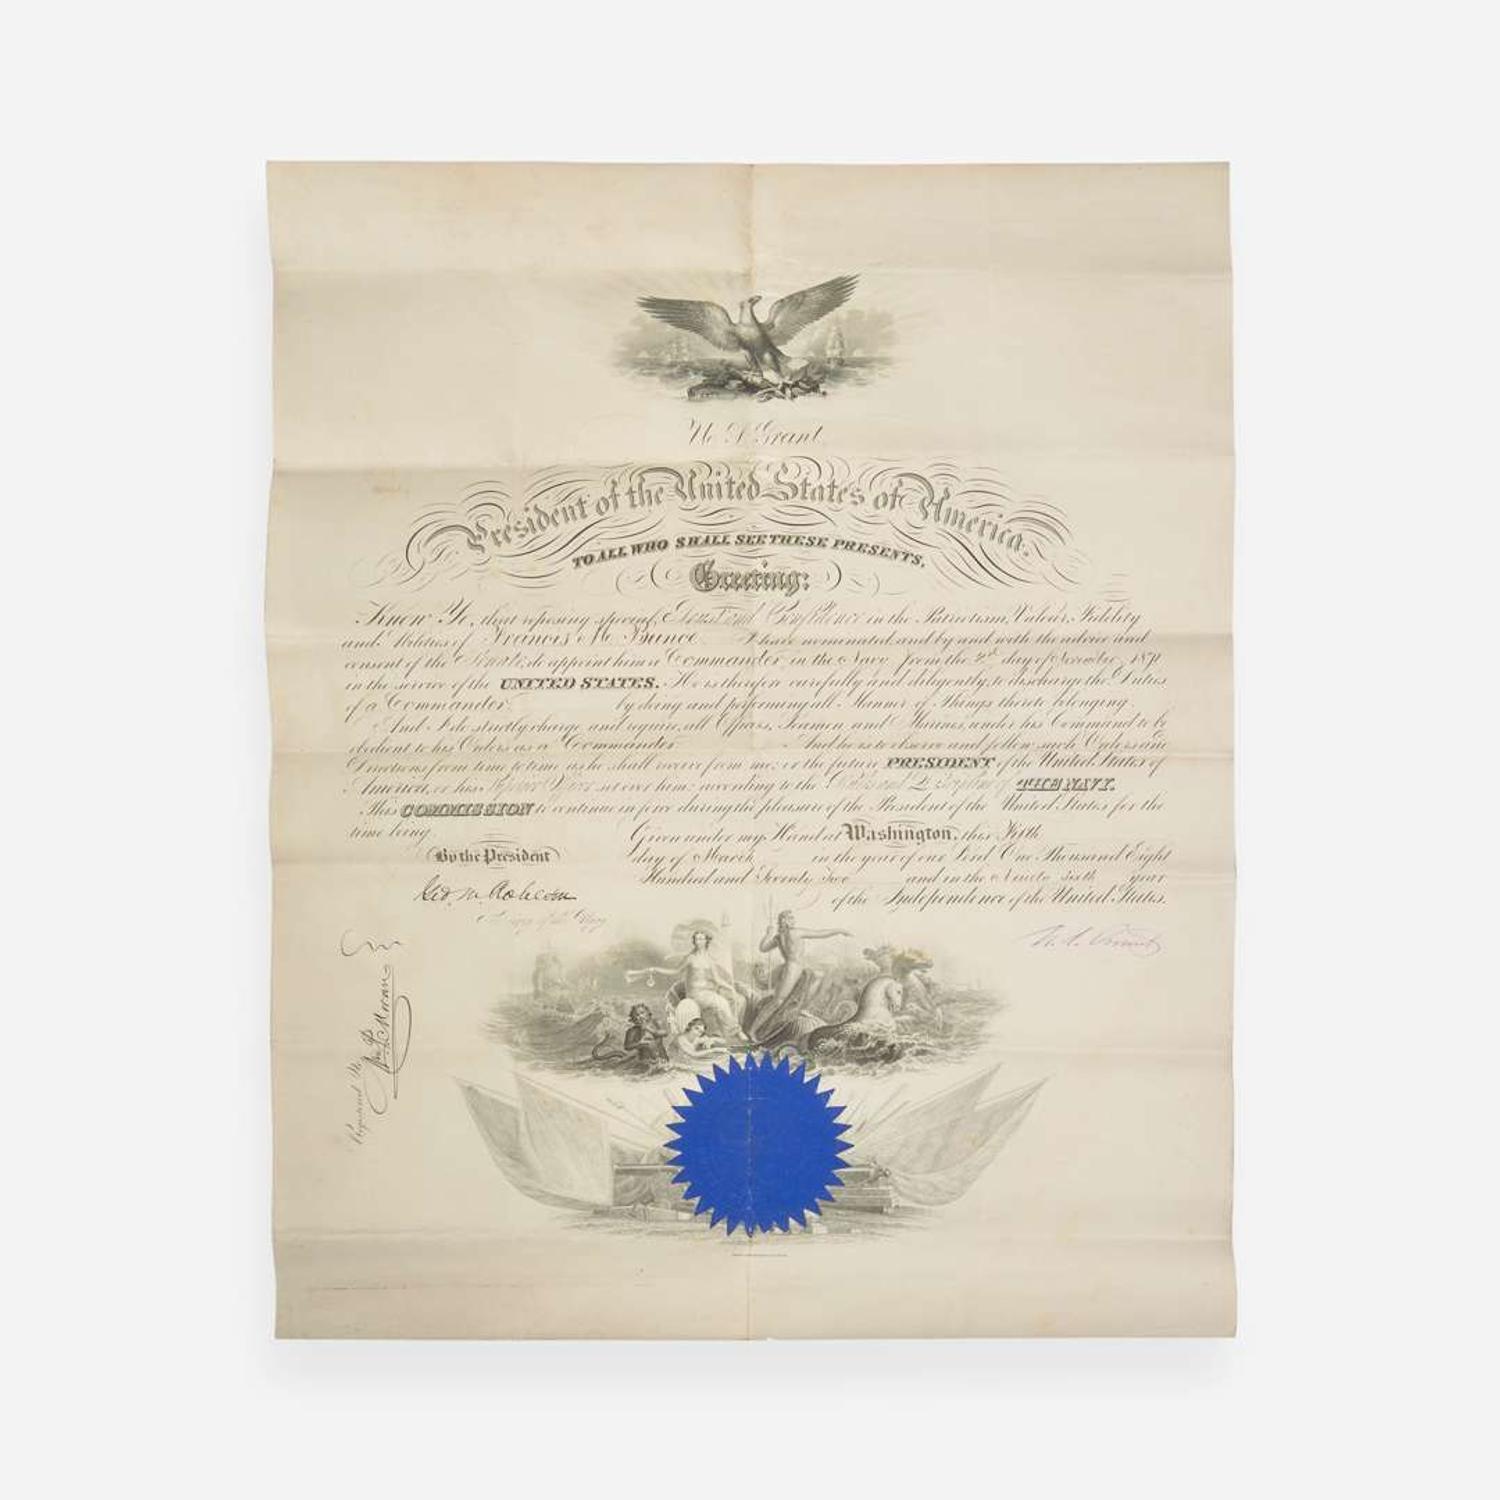 U. S. Grant
President of the United States of America.
TO ALL WHO SHALL SEE THESE PRESENTS,
Greeting:
Know Ye, that reposing special Trust and Confidence in the Patriotism, Valour, Fidelity
and Abilities of Francis M. Bunce I have nominated and by and with the advice and
consent of the Senate, do appoint him a Commander in the Navy from the day of November, 1871
in the service of the UNITED STATES. He is therefore carefully and diligently to discharge the Duties
of a Commander by doing and performing all Manner of Things thereto belonging.
And I do strictly charge and require all Officers, Seamen and Marines under his Command to be
obedient to his Orders as a Commander And he is to observe and follow such Orders and
Directions from time to time as he shall receive from me, or the future PRESIDENT of the United States of
America, or his Superior Officer set over him, according to the Rules and Discipline of THE NAVY.
This COMMISSION to continue in force during the pleasure of the President of the United States for the
time being.
Given under my Hand at Washington, this Fifth
day of March in the year of our Lord One Thousand Eight
Hundred and Seventy Two and in the Ninety Sixth year
of the Independence of the United States.
By the President
Geo. M. Robeson
Secretary of the Navy
U. S. Grant
Registered